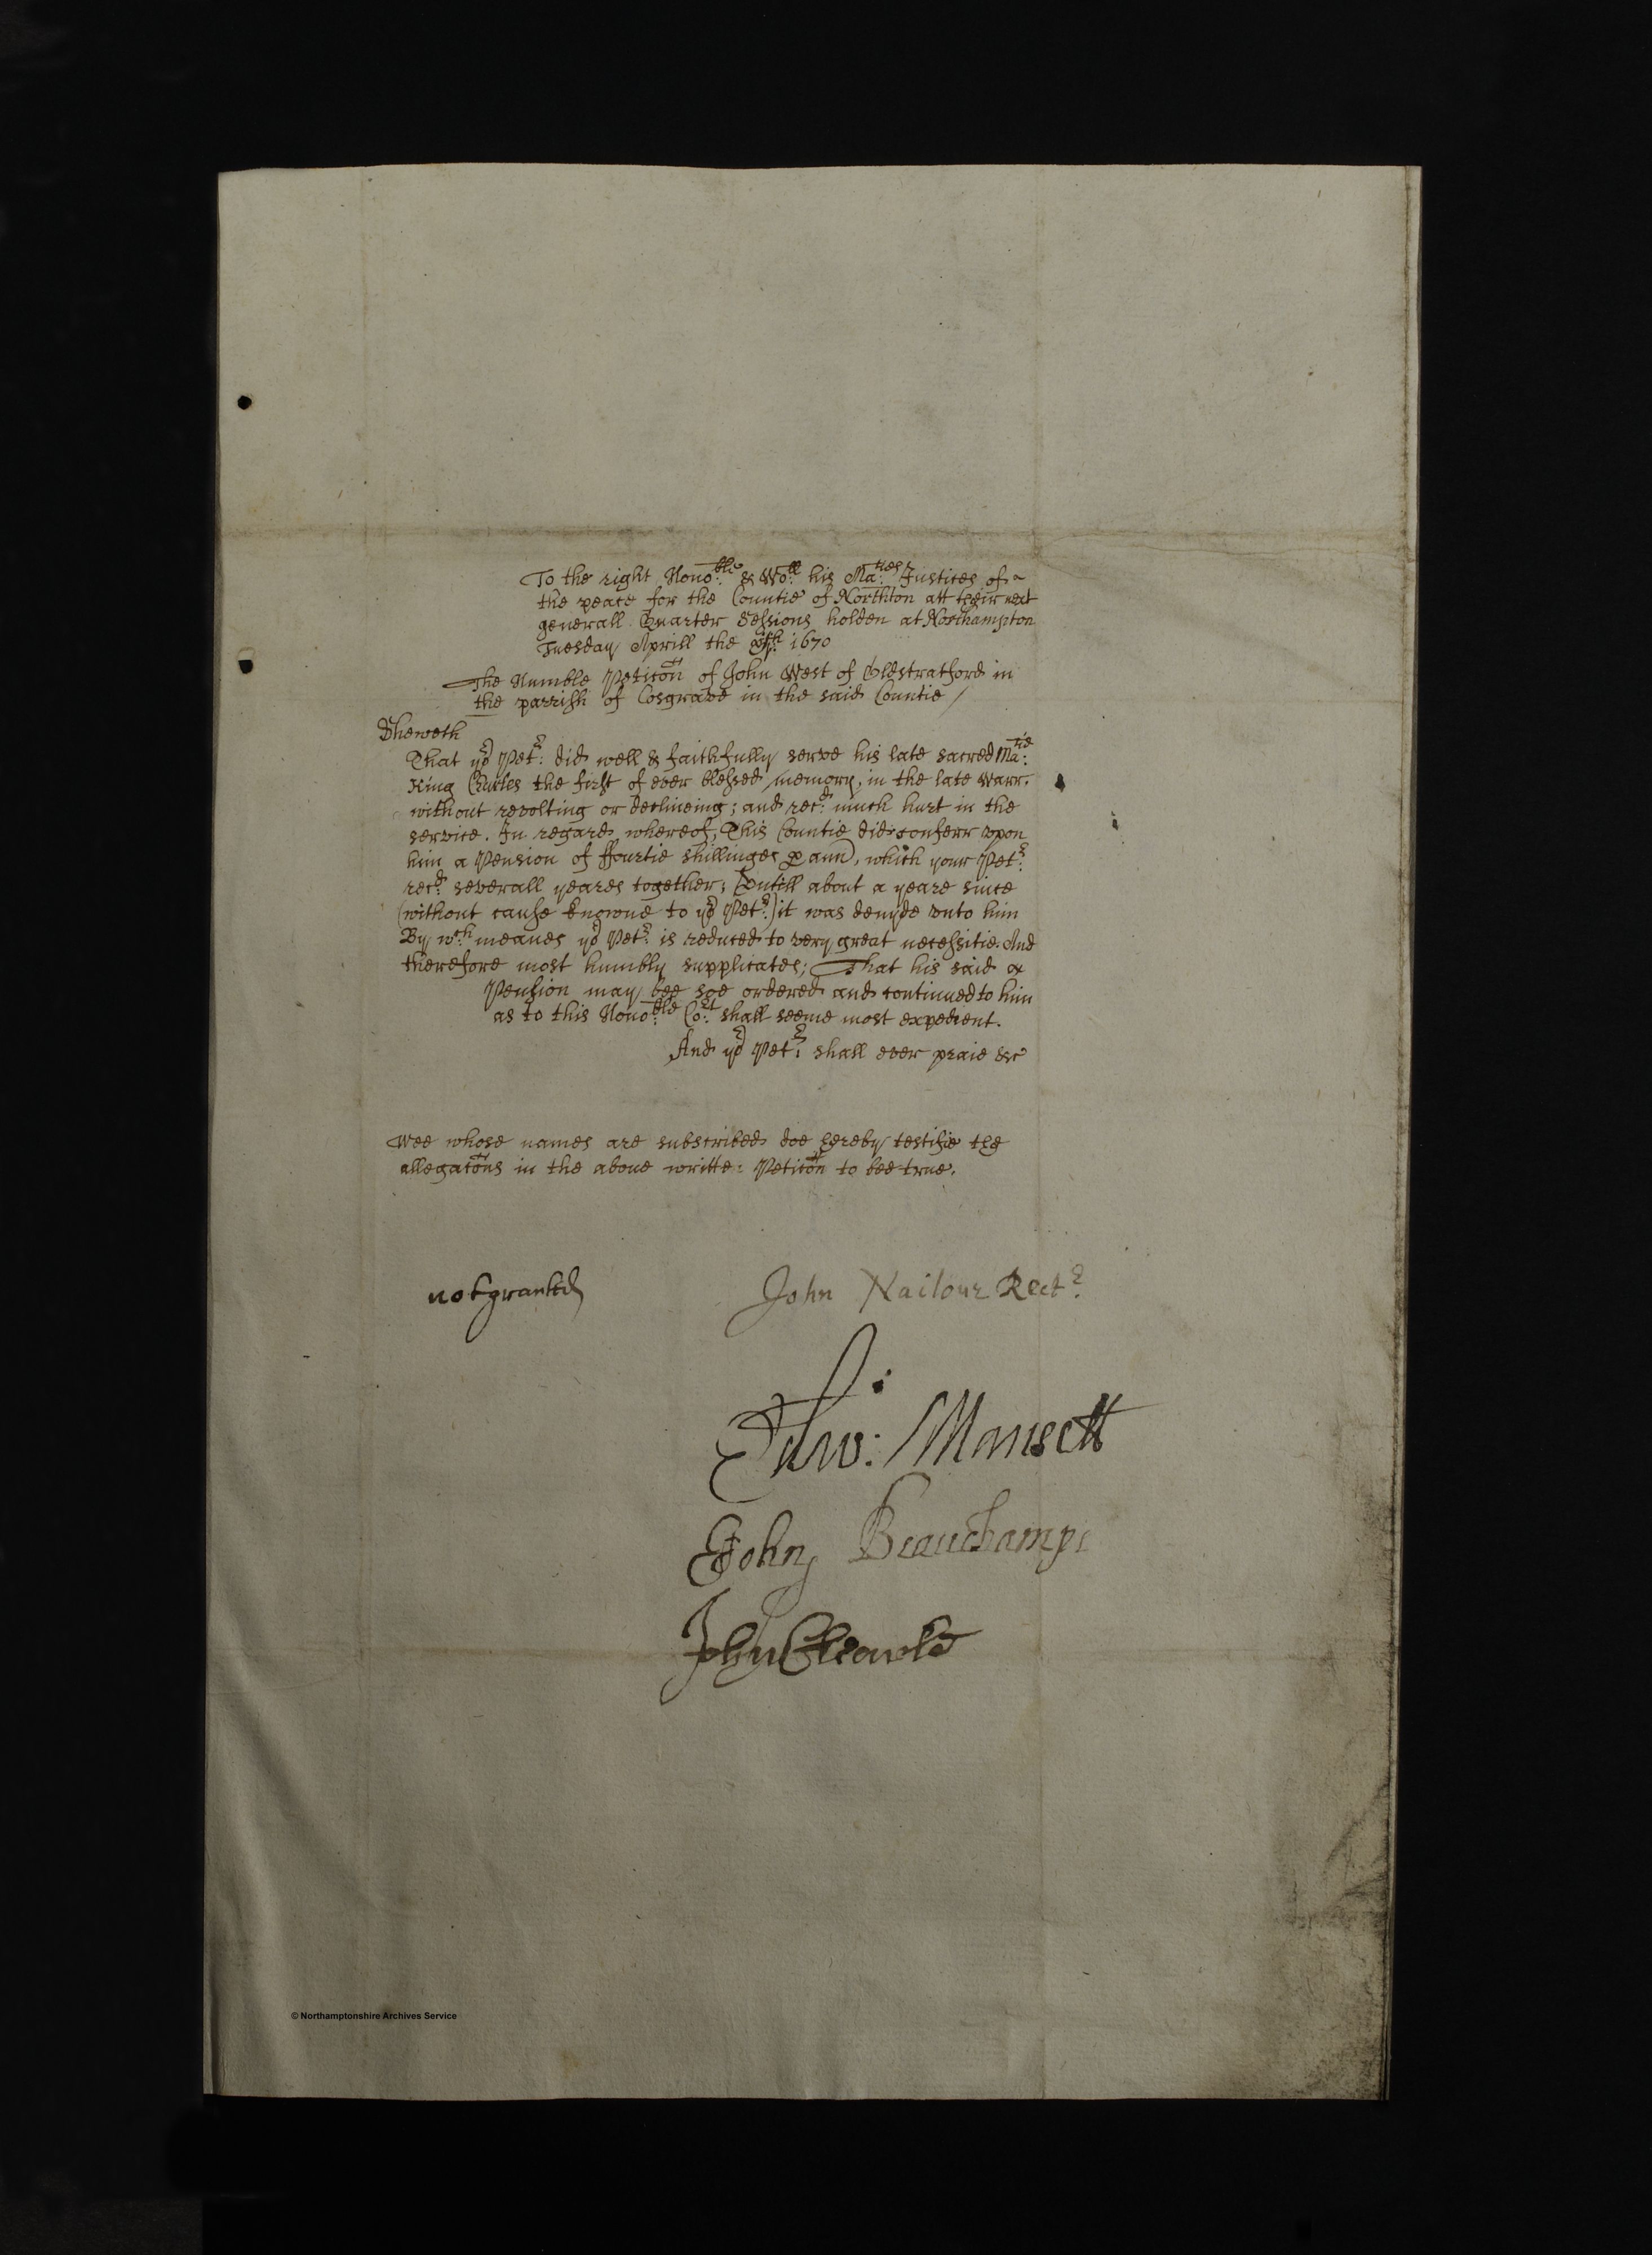 To the right Hono:ble & Wo:ll his Ma:ties Justices of
the peace for the Countie of Northton att their next
generall Quarter Sessions holden at Northampton
Tuesday Aprill the 1670
The Humble Petic̃on of John West of Oldstratford in
the parrish of Cosgrave in the said Countie /
Sheweth
That yor Petr: did well & faithfully serve his late sacred Ma:tie
King Charles the first of ever blessed memory, in the late warr,
without revolting or declineing; and rec:d much hurt in the
service. In regard whereof, This Countie did conferr vpon
him a Pension of ffourtie shillinges p ann), which your Petr:
rec:d severall yeares together; Vntill about a yeare since
(without cause knowne to yor Petr:) it was denyde vnto him
By w:ch meanes yor Petr: is reduced to very great necessitie. And
therefore most humbly supplicates; That his said
Pension may bee soe ordered and continued to him
as to this Hono:ble Co:rt shall seeme most expedient.
And yor Petr: shall ever praie &c
Wee whose names are subscribed doe hereby testifie the
allegac̃ons in the above writte: Petic̃on to bee true.
not granted
John Nailour Rectr:
Edw: Mansell
John Beauchamp
John
© Northamptonshire Archives Service